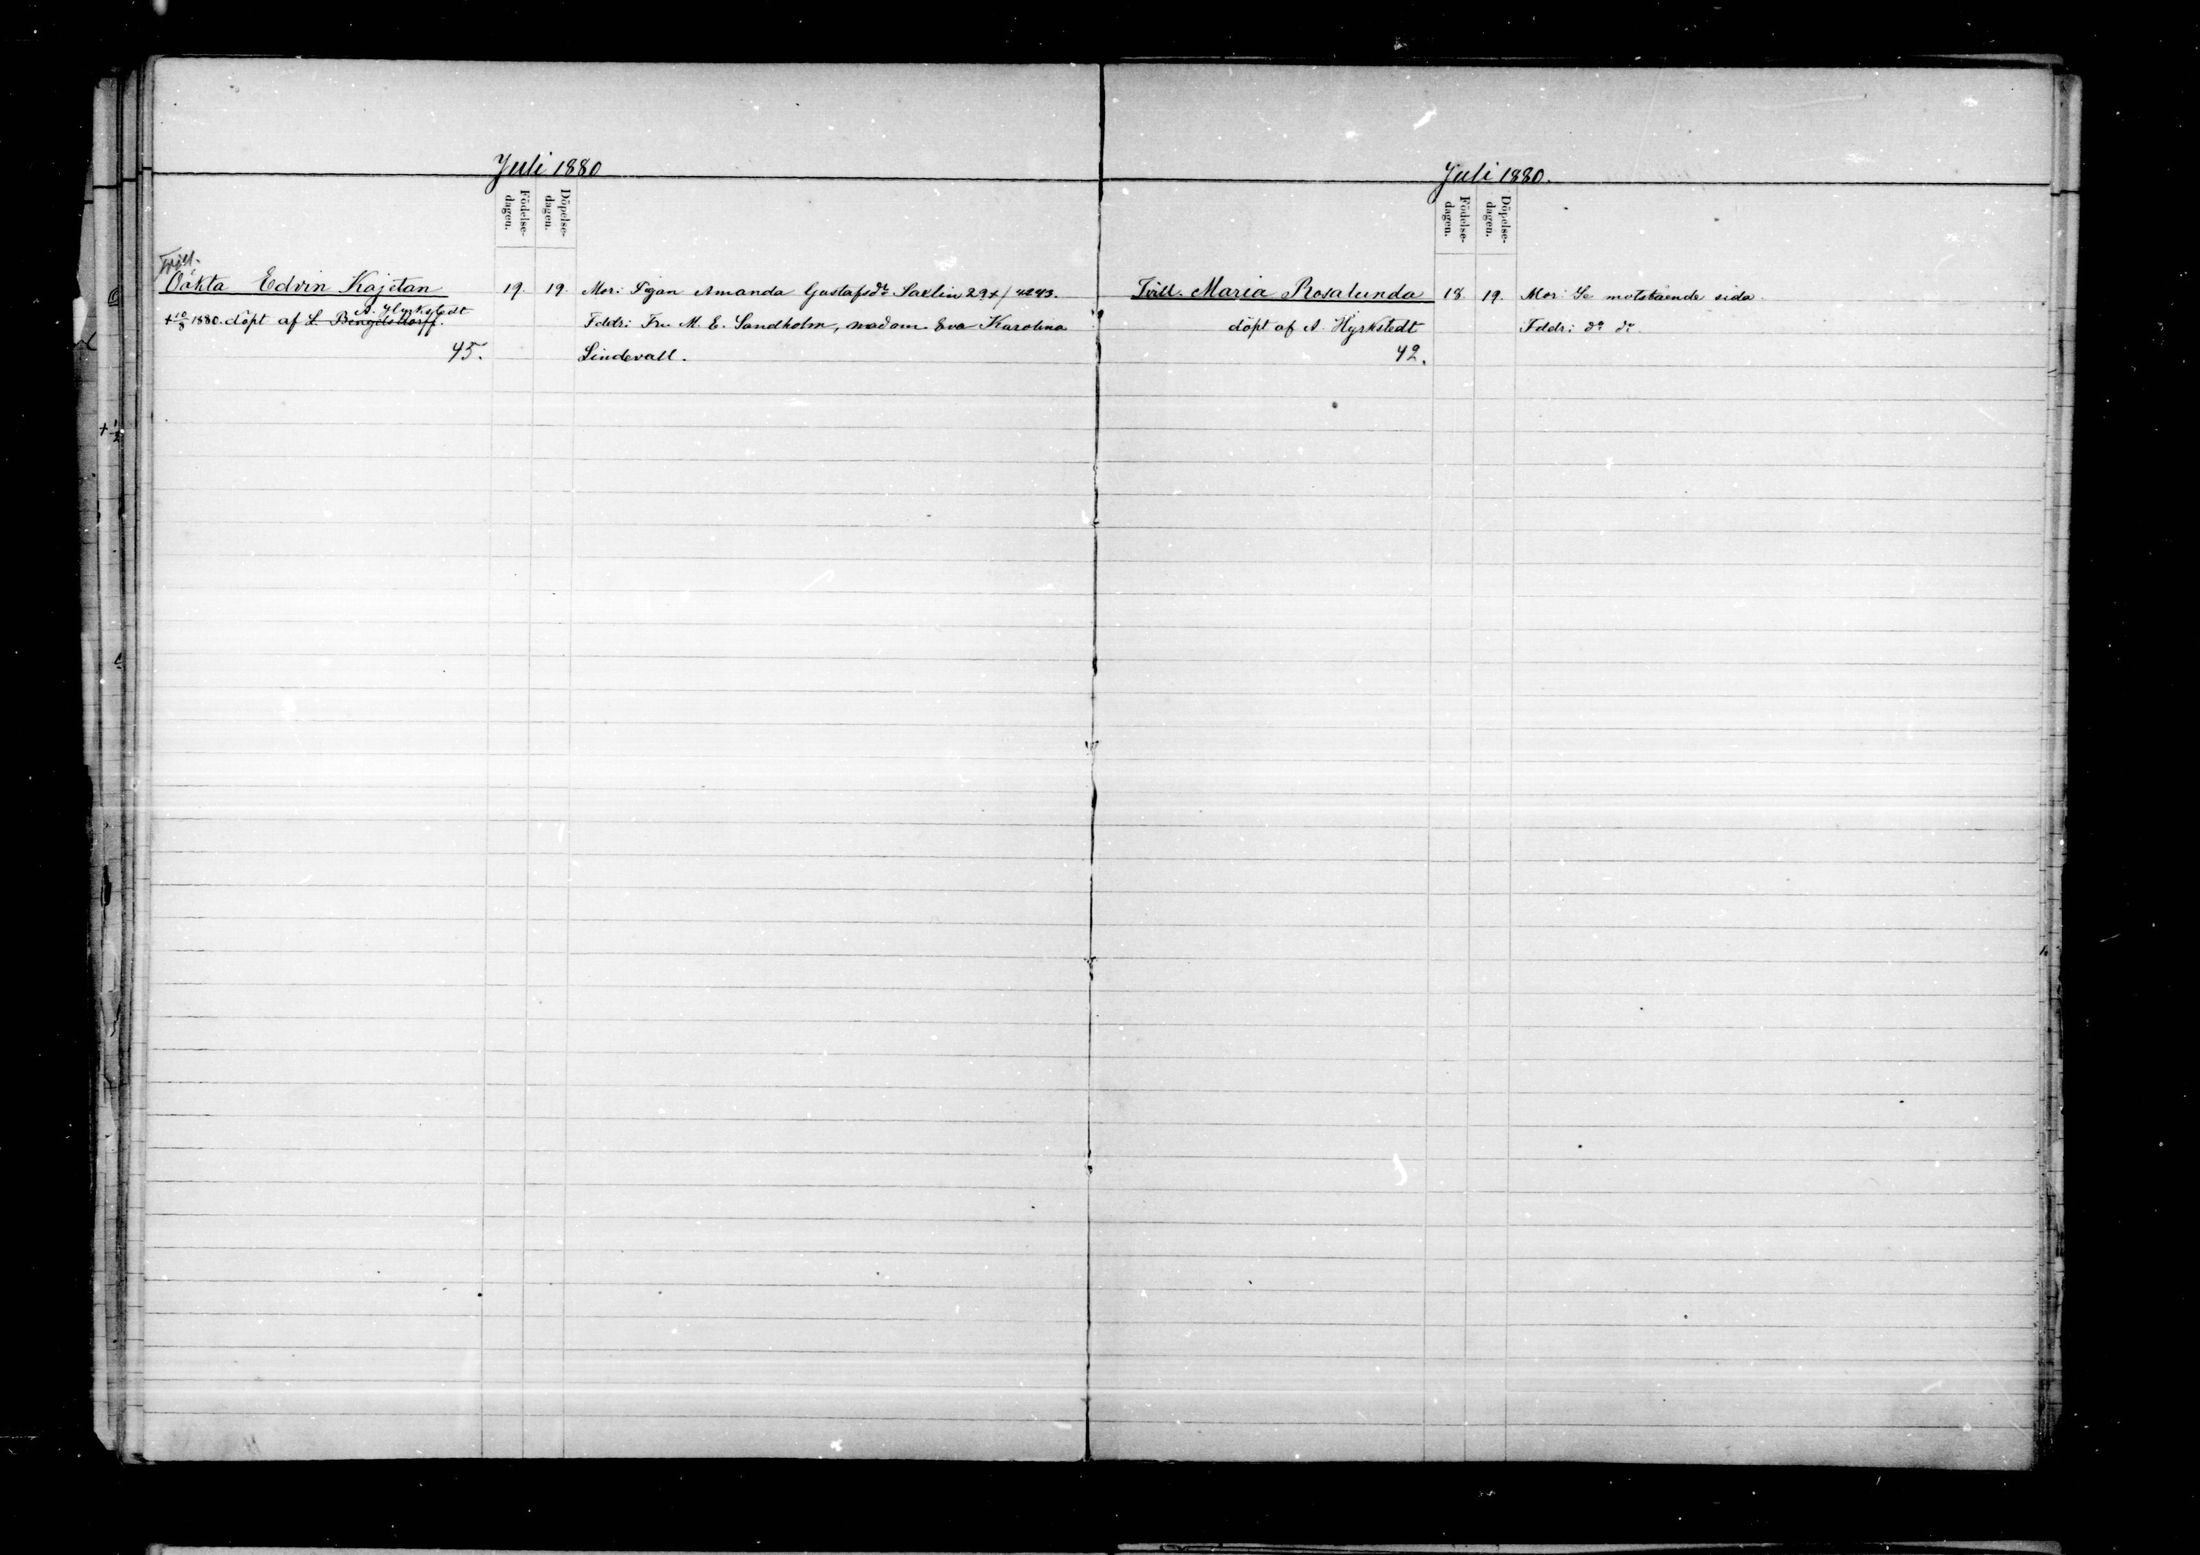 Juli 1880
Födelse-
dagen.
Döpelse-
dagen.
Tvill.
Oäkta Edvin Kajetan
19. 19. Mor: Pigan Amanda Gustafsdr Saxlin 29 + / 4243.
A. Hyrkstedt
+ 10/8 1880. döpt af L. Bengelsdorff.
Fddr: Fru M. E. Sandholm, madam Eva Karolina
45.
Lindevall.
Juli 1880.
Födelse-
dagen.
Döpelse-
dagen.
Tvill. Maria Rosalunda 18. 19. Mor: Se motstående sida.
döpt af A. Hyrkstedt Fddr: do do.
42.